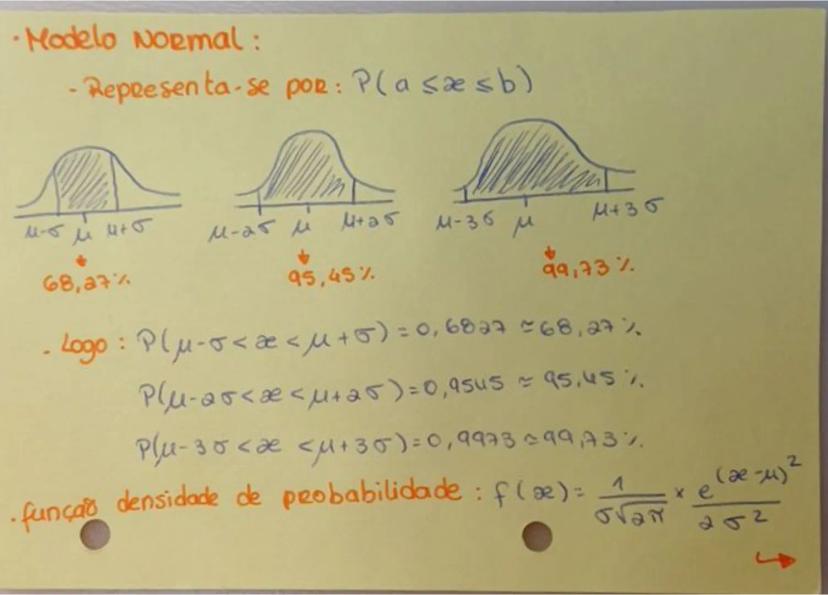 · Modelo Normal:
- Representa-se por: P(a ≤ x ≤ b)
μ-σ μ μ+σ
μ-2σ μ μ+2σ
μ-3σ μ μ+3σ
68,27%
95,45%
99,73%
· Logo: P(μ-σ < x < μ+σ) = 0,6827 ≃ 68,27%
P(μ-2σ < x < μ+2σ) = 0,9545 ≃ 95,45%
P(μ-3σ < x < μ+3σ) = 0,9973 ≃ 99,73%
· função densidade de probabilidade: f(x) = 1/(σ√2π) × e^(x-μ)²/(2σ²)